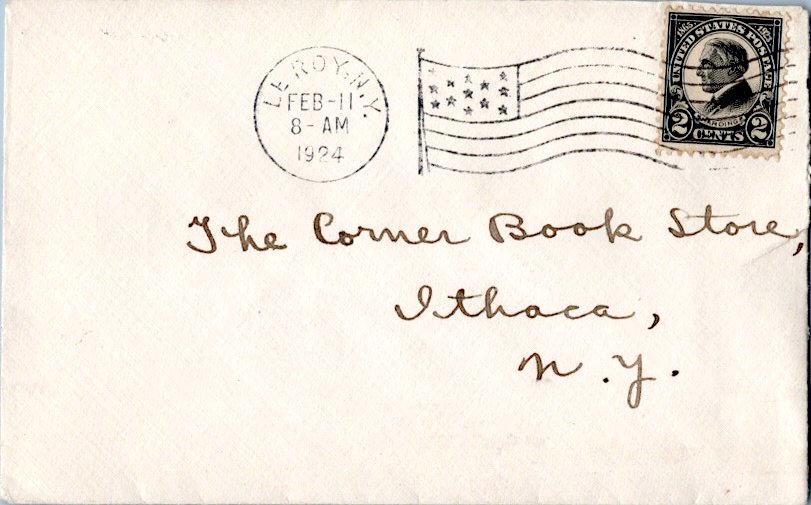 LE ROY, N.Y.
FEB-11
8-AM
1924
UNITED STATES POSTAGE
1865 1923
HARDING
2 CENTS 2
The Corner Book Store,
Ithaca,
N.Y.